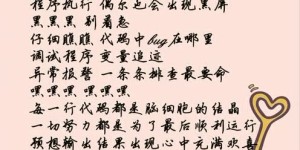 程序执行 偶尔也会出现黑屏
黑黑黑 别着急
仔细瞧瞧代码中bug在哪里
调试程序 变量追逐
异常报警 一条条排查最要命
嘿嘿嘿嘿 嘿嘿嘿嘿
每一行代码都是脑细胞的结晶
一切努力都是为了最后顺利运行
预想输出结果出现心中充满欢喜